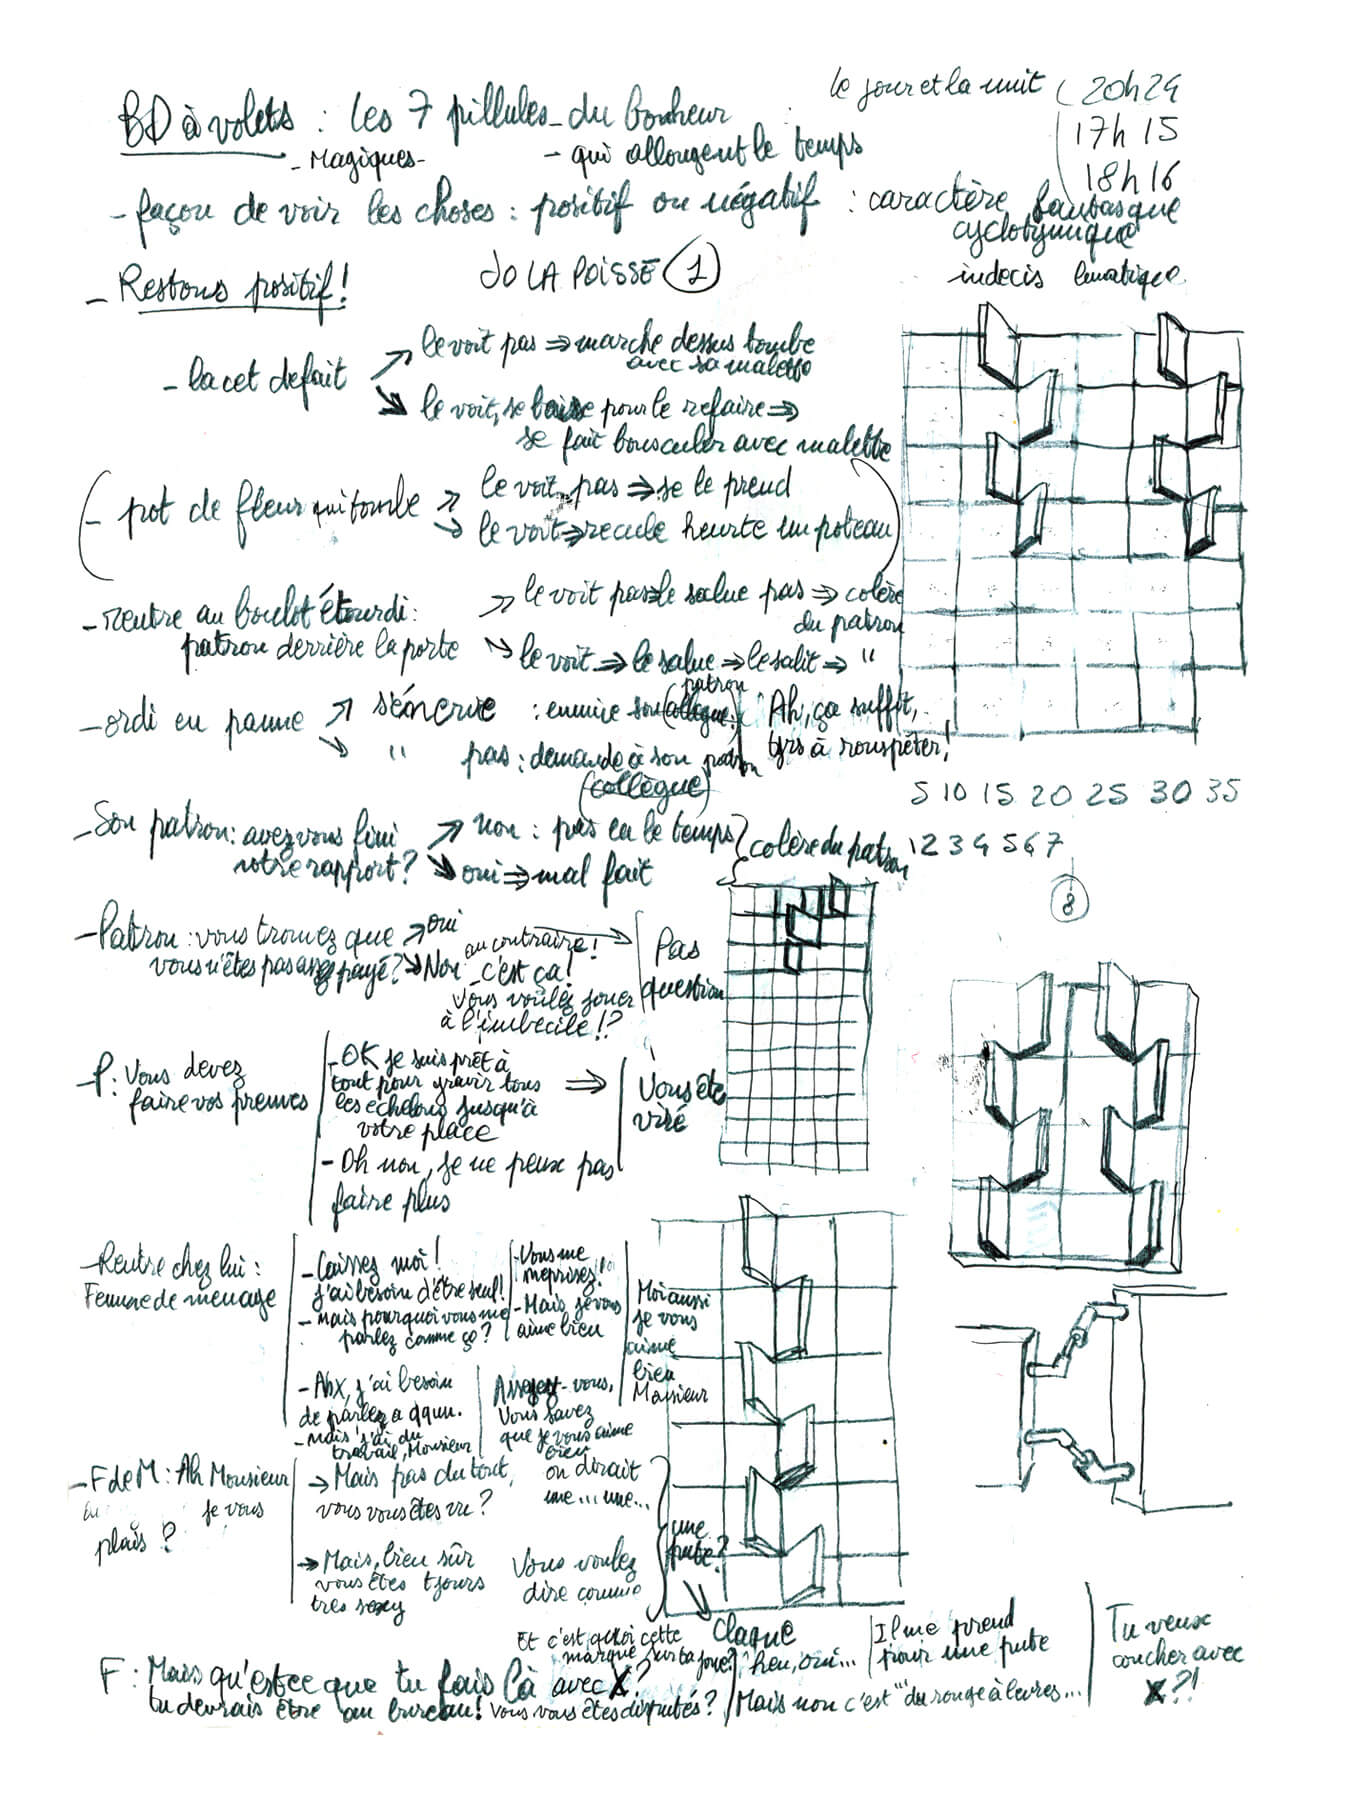 BD à volets : les 7 pillules du bonheur
- Magiques -
- qui allongent le temps
le jour et la nuit ( 20h24
17h15
18h16
- façon de voir les choses : positif ou négatif : caractère fantasque
cyclotymique
indecis lunatique
- Restons positif !
JO LA POISSE 1
- lacet defait
↗ le voit pas ⇒ marche dessus tombe
avec sa malette
↘ le voit, se baisse pour le refaire ⇒
se fait bousculer avec malette
( - pot de fleur qui tombe
→ le voit pas ⇒ se le prend
→ le voit ⇒ recule heurte un poteau )
- rentre au boulot étourdi :
patron derrière la porte
→ le voit pas le salue pas ⇒ colère
du patron
↘ le voit ⇒ le salue ⇒ le salit ⇒ "
- ordi en panne ↗ s'énerve : ennuie son (collègue)
patron
↘ " pas : demande à son patron
(collègue)
Ah, ça suffit,
tjrs à rouspéter !
5 10 15 20 25 30 35
- Son patron : avez vous fini
votre rapport ?
↗ non : pas eu le temps
↘ oui ⇒ mal fait
} colère du patron
1 2 3 4 5 6 7
8
- Patron : vous trouvez que
vous n'êtes pas assez payé ?
→ oui
↘ Non au contraire !
c'est ça !
Vous voulez jouer
à l'imbecile !?
Pas
question
- P : Vous devez
faire vos preuves
- OK je suis prêt à
tout pour gravir tous
les echelons jusqu'à
votre place
- Oh non, je ne peux pas
faire plus
⇒ Vous êtes
viré
- Rentre chez lui :
Femme de menage
- Laissez moi !
j'ai besoin d'être seul !
- mais pourquoi vous me
parlez comme ça ?
- Vous me
meprisez !
- Mais je vous
aime bien
Moi aussi
je vous
aime
bien
Monsieur
- Ah X, j'ai besoin
de parler a qqun.
- mais j'ai du
travail, Monsieur
Asseyez-vous,
Vous savez
que je vous aime
bien
- F de M : Ah Monsieur
je vous
plais ?
→ Mais pas du tout,
vous vous êtes vu ?
on dirait
une... une...
→ Mais, bien sûr
vous êtes tjours
très sexy
Vous voulez
dire comme
une
pute ?
Claque
F : Mais qu'est ce que tu fais là avec X ?
tu devrais être au bureau ! Vous vous êtes disputés ?
Et c'est quoi cette
marque sur ta joue ?
heu, oui...
Mais non c'est du rouge à levres...
Il me prend
pour une pute
Tu veux
coucher avec
X ?!